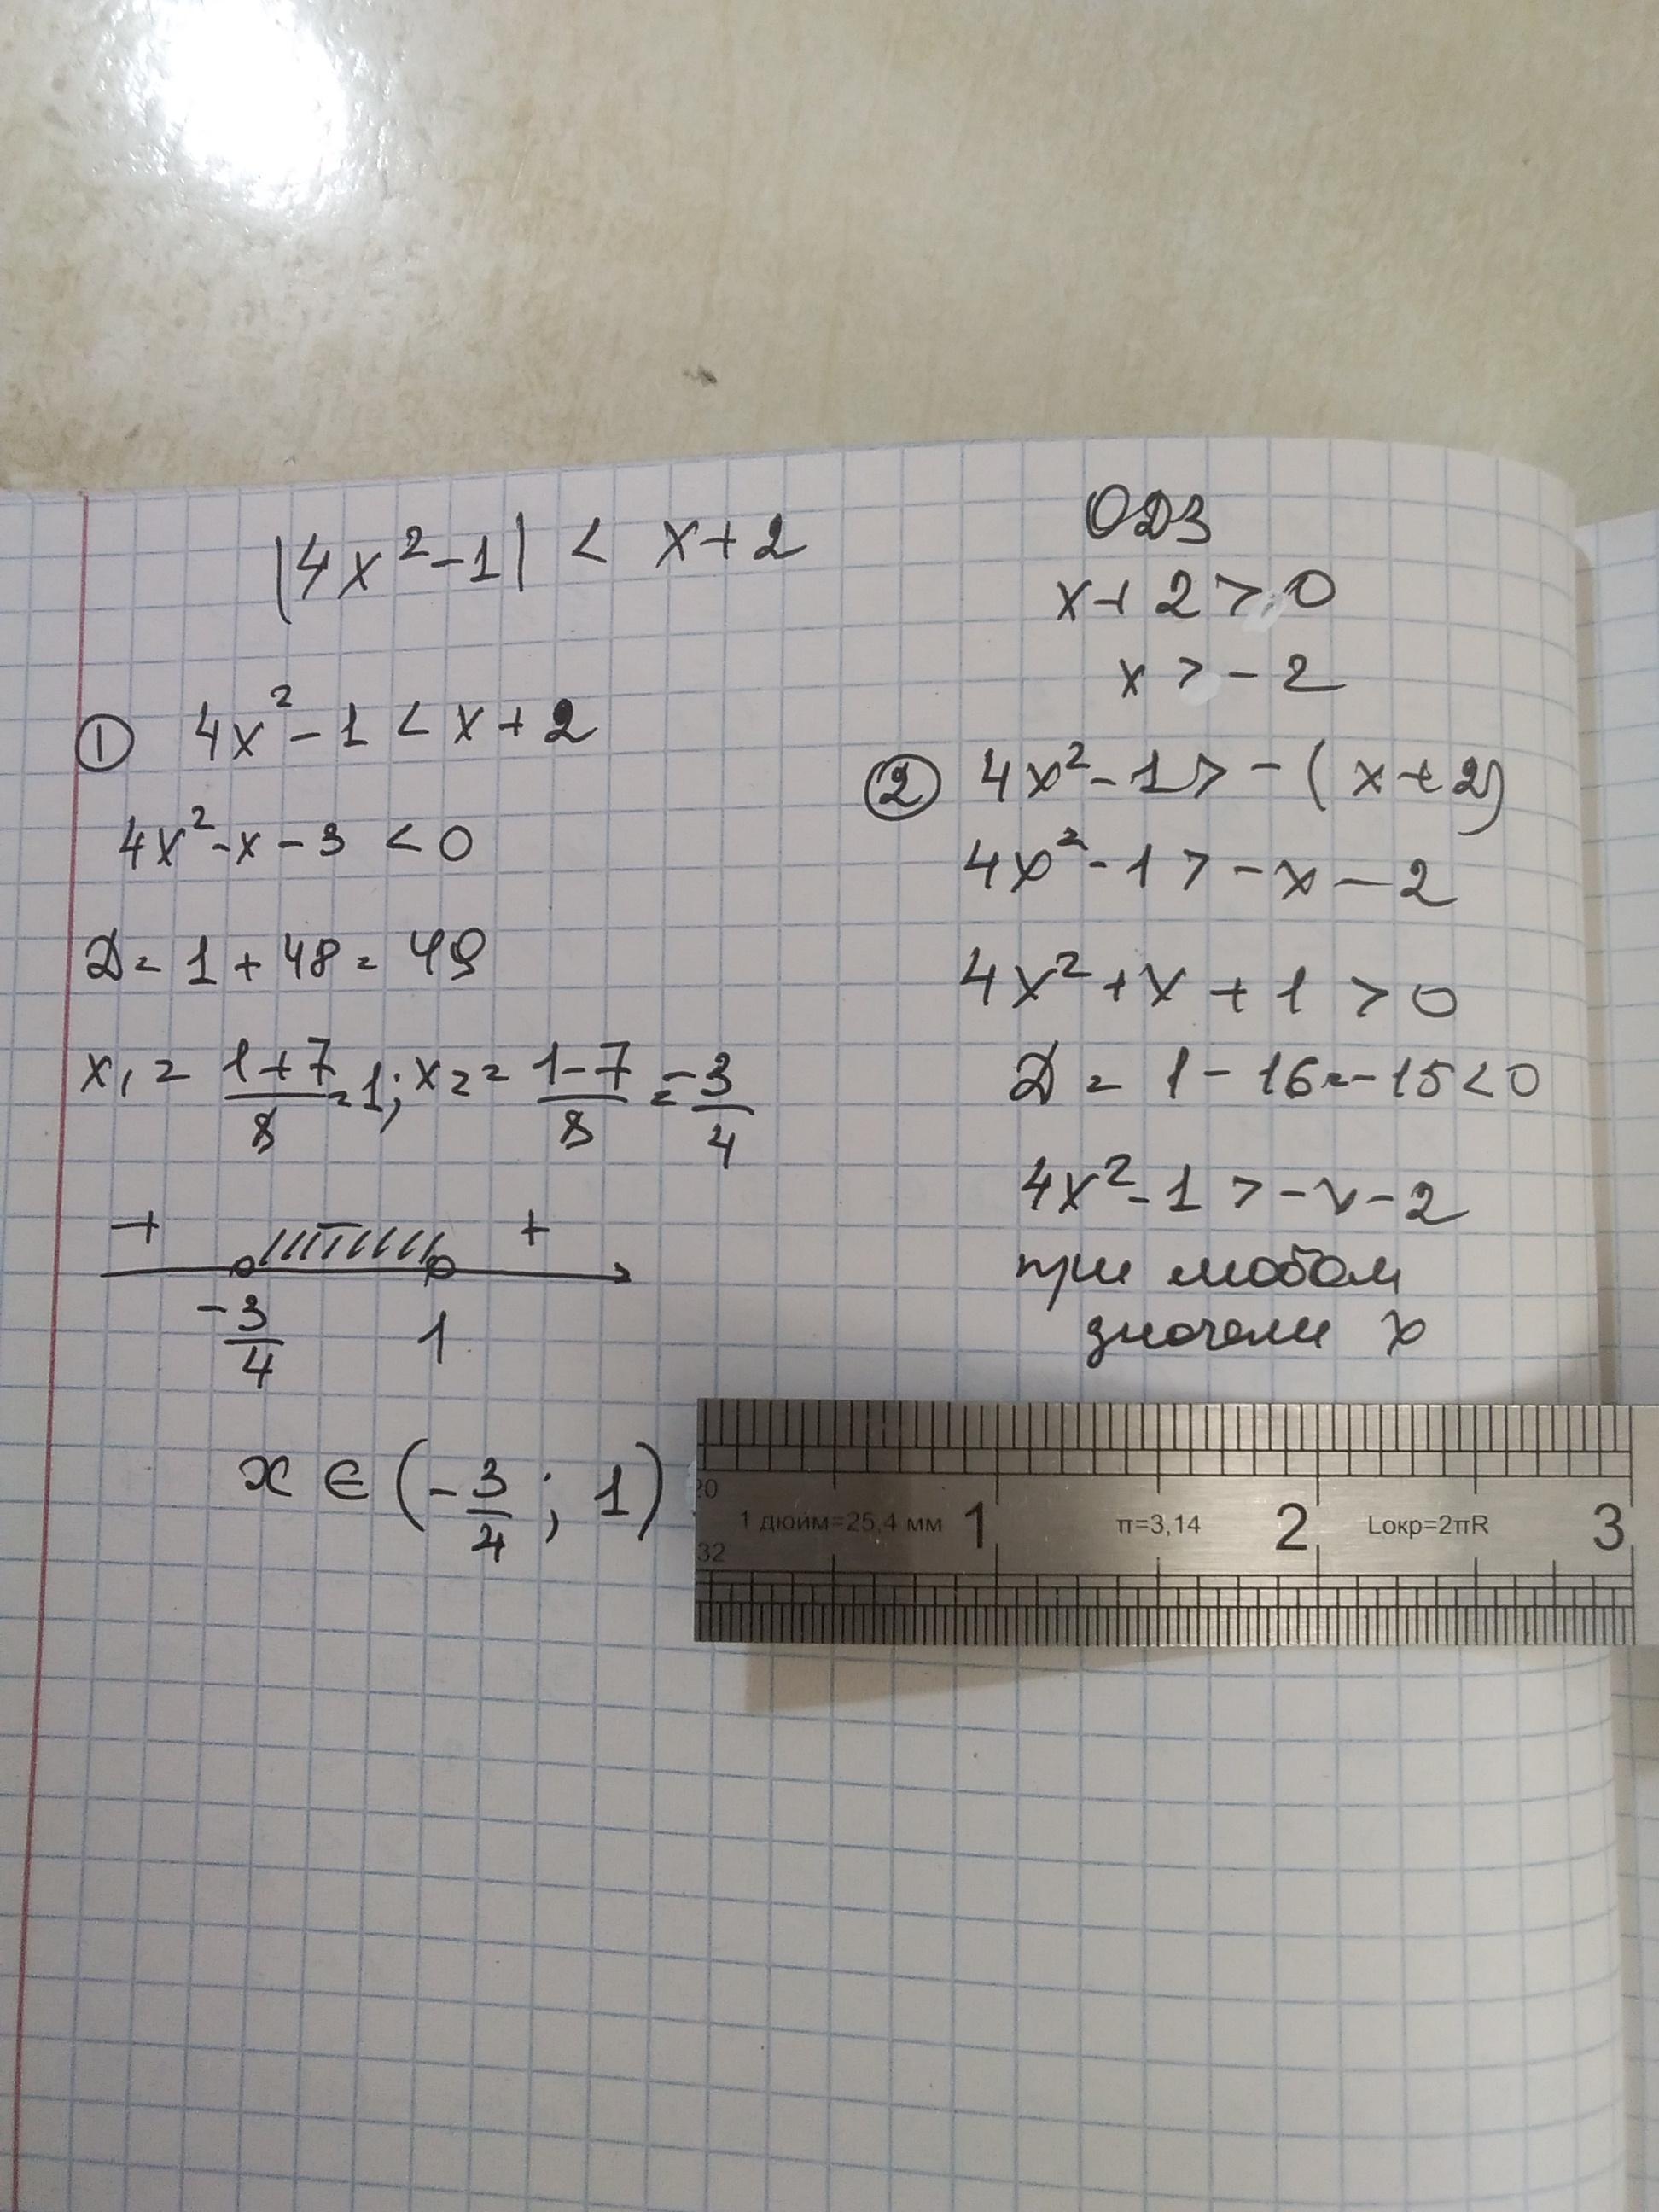 |4x²-1| < x+2
ОДЗ
x+2>0
x>-2
① 4x²-1<x+2
4x²-x-3 <0
D= 1+48= 49
x₁= (1+7)/8=1; x₂= (1-7)/8=-3/4
+ - +
-3/4 1
x ∈ (-3/4; 1)
② 4x²-1>-(x+2)
4x²-1>-x-2
4x²+x+1>0
D= 1-16=-15<0
4x²-1>-x-2
при любом
значени x
20
1 дюйм=25,4 мм 1 π=3,14 2 Lокр=2πR 3
32